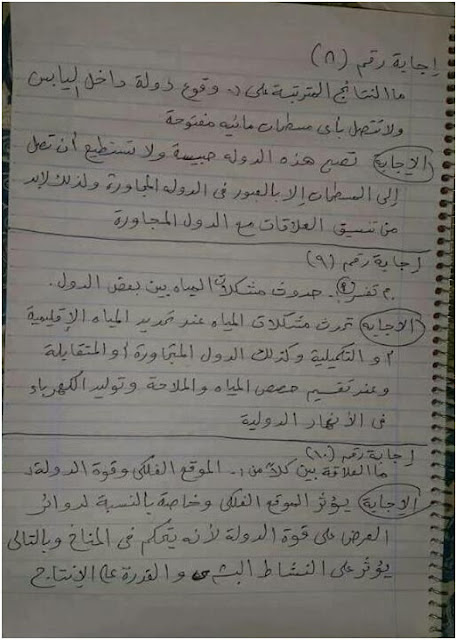 إجابة رقم (٨)
ما النتائج المترتبة على :- وقوع دولة داخل اليابس
ولا تتصل بأى مسطحات مائيه مفتوحة
الإجابة تصبح هذه الدوله حبيسة ولا تستطيع أن تصل
إلى المسطحات إلا بالعبور فى الدوله المجاورة ولذلك لابد
من تنسيق العلاقات مع الدول المجاورة
إجابة رقم (٩)
بم تفسر :- حدوث مشكلات المياه بين بعض الدول.
الاجابه تحدث مشكلات المياه عند تحديد المياه الإقليمية
أو التكميلية وكذلك الدول المتجاورة أو المتقابلة
وعند تقسيم حصص المياه والملاحة وتوليد الكهرباء
فى الأنهار الدولية
إجابة رقم (١٠)
ما العلاقة بين كلاً من :- الموقع الفلكى وقوة الدولة
الإجابة يؤثر الموقع الفلكى وخاصة بالنسبة لدوائر
العرض على قوة الدولة لأنه يتحكم فى المناخ وبالتالى
يؤثر على النشاط البشرى والقدرة على الإنتاج